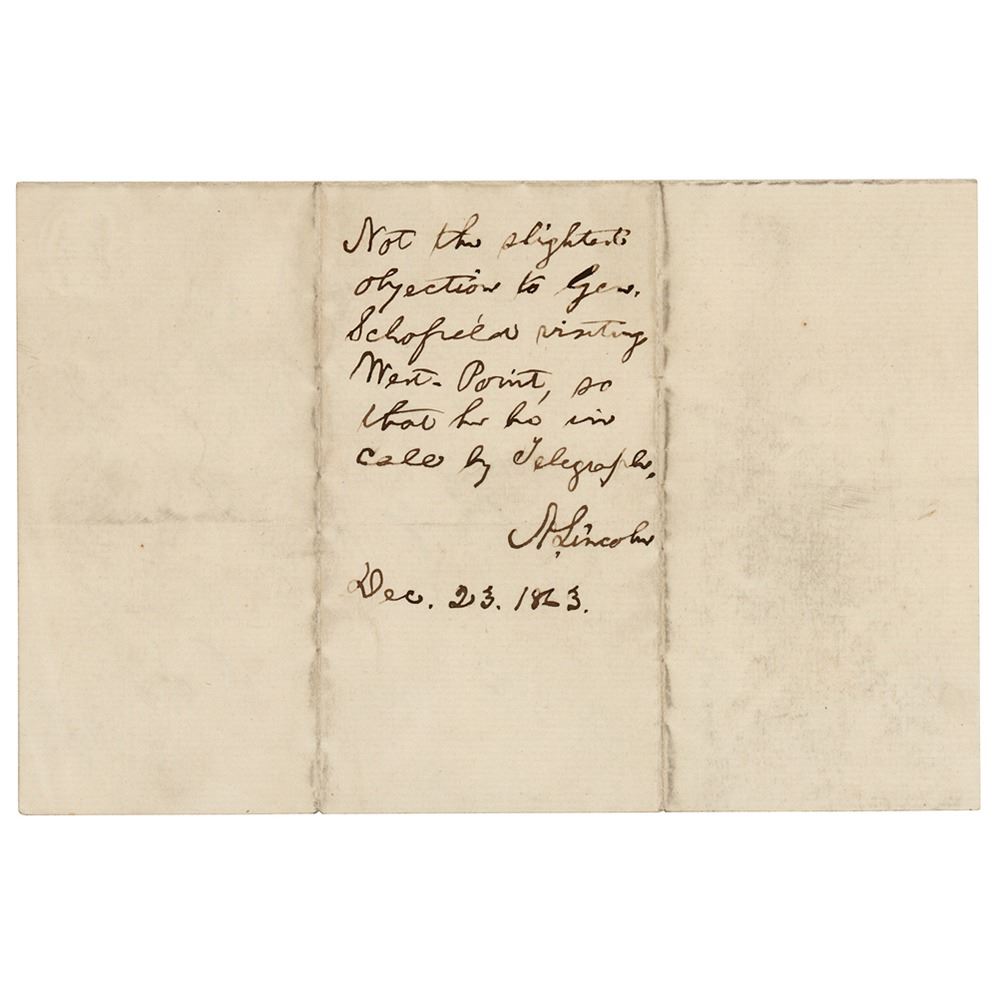 Not the slightest
objection to Gen.
Schofield visiting
West-Point, so
that he be in
call by Telegraph.
A. Lincoln
Dec. 23. 1863.